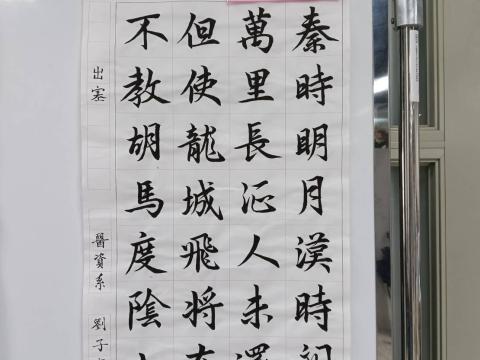 秦時明月漢時
萬里長征人未還
但使龍城飛將
不教胡馬度陰
出塞
醫資系 劉子